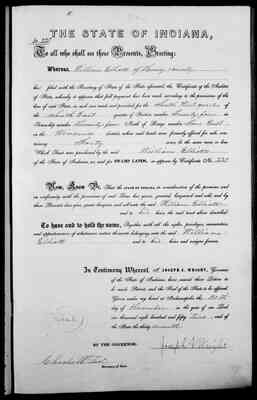 THE STATE OF INDIANA,
To all who shall see these Presents, Greeting:
WHEREAS, William Elliott of Henry County
has filed with the Secretary of State of the State aforesaid, the Certificate of the Auditor
of State, whereby it appears that full payment has been made according to the provisions of the
law of said State, in such case made and provided for the South East quarter
of the South East quarter of Section number Twenty four in
Township number North of Range number East
in the district, where said tracts were formerly offered for sale, con-
taining Forty acres to the acre more or less
Which Tract was purchased by the said William Elliott
of the State of Indiana, as and for SWAMP LANDS, as appears by Certificate No. 221
Now, Know Ye: That the STATE OF INDIANA, in consideration of the premises and
in conformity with the provisions of said Laws, has given, granted, bargained and sold, and by
these Presents does give, grant, bargain and sell unto the said William Elliott
and to his heirs the said tract above described
To have and to hold the same, Together with all the rights, privileges, immunities
and appurtenances of whatsoever nature thereunto belonging unto the said William
Elliott and to his heirs and assigns forever.
In Testimony Whereof, I, JOSEPH A. WRIGHT, Governor
of the State of Indiana, have caused these Letters to
be made Patent, and the Seal of the State to be affixed.
Given under my hand at Indianapolis, the
day of November in the year of our Lord
one thousand eight hundred and fifty Two, and
of the State the thirty seventh
Seal
BY THE GOVERNOR, Joseph A Wright
Charles H Test
Secretary of State.